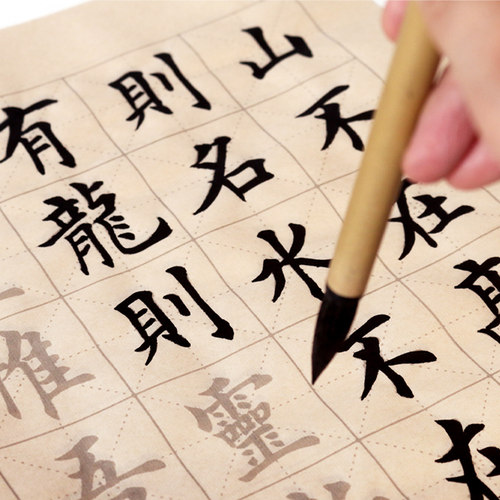 山不在高
則名水不在
有龍則靈
惟吾